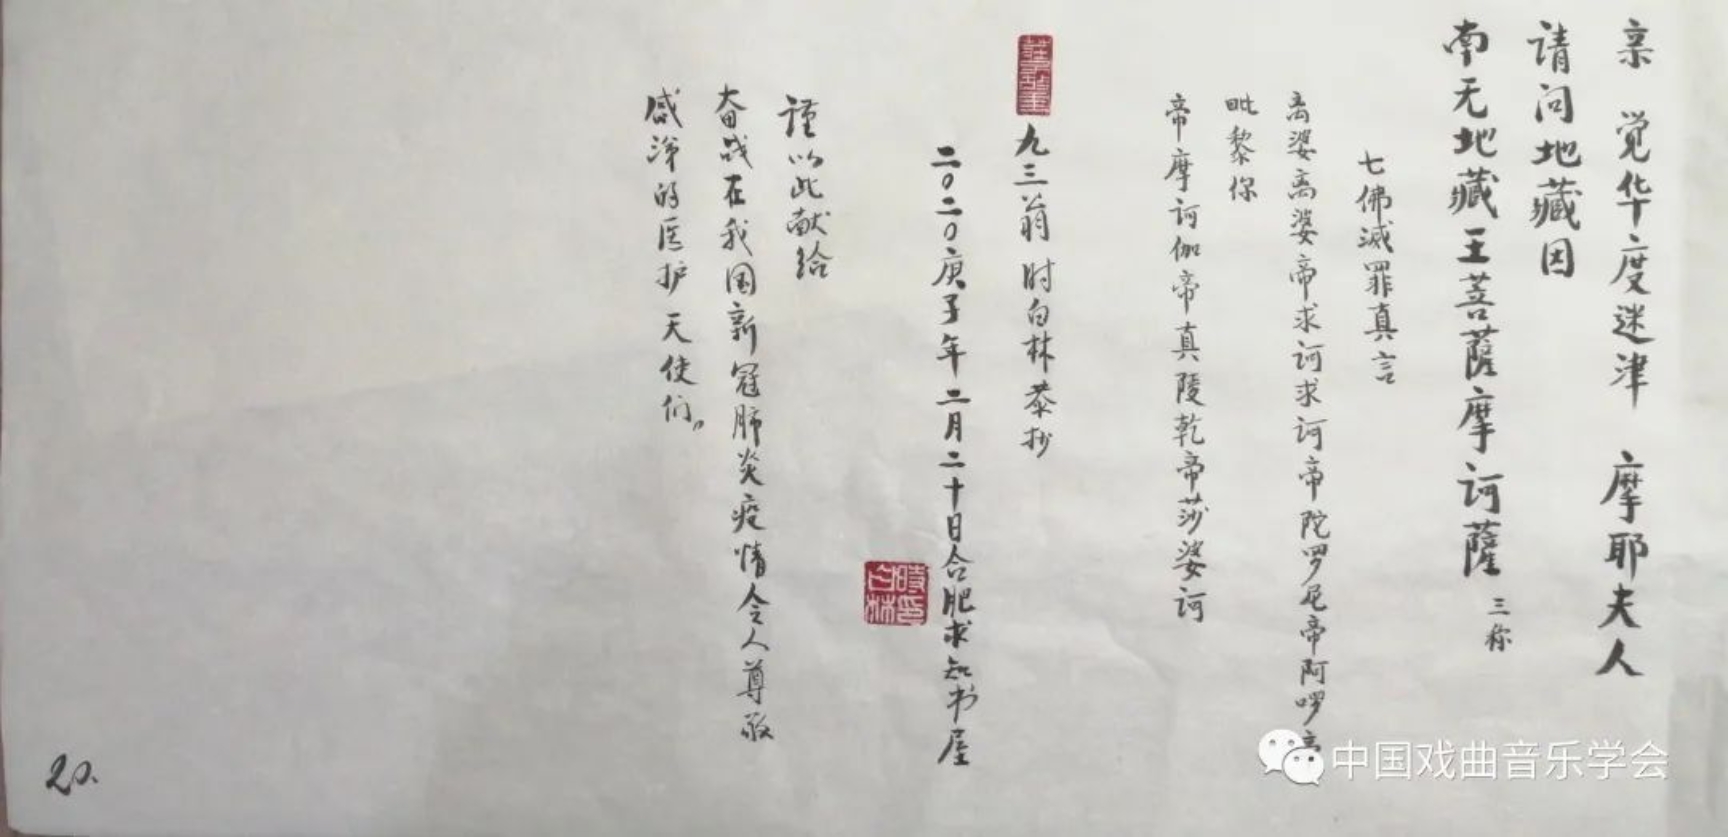 亲 觉华度迷津 摩耶夫人
请问地藏因
南无地藏王菩萨摩诃萨 三称
七佛滅罪真言
离婆离婆帝求诃求诃帝陀罗尼帝阿啰
毗黎你
帝摩诃伽帝真陵乾帝莎婆诃
九三翁时白林恭抄
二〇二〇庚子年二月二十日合肥求知书屋
時印白林
谨以此献给
奋战在我国新冠肺炎疫情令人尊敬
感谢的医护天使们。
20.
中国戏曲音乐学会